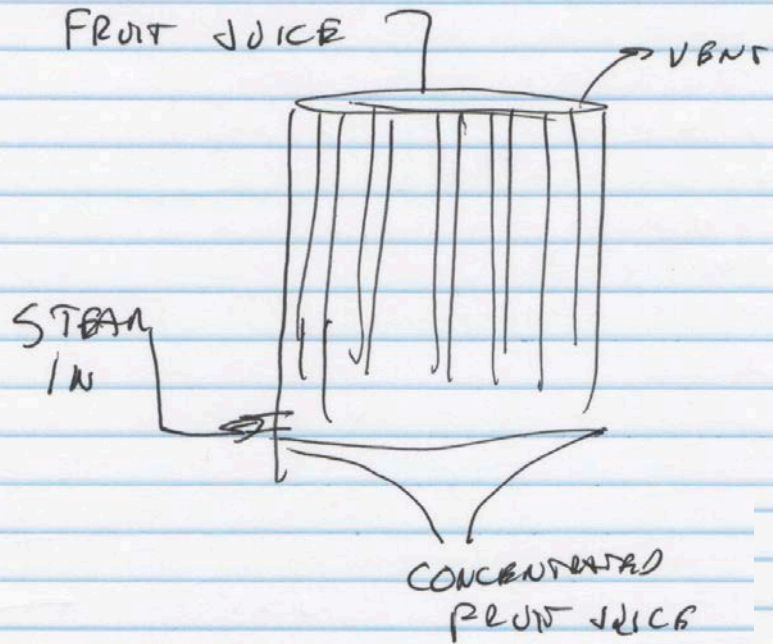 FRUIT JUICE
VENT
STEAM
IN
CONCENTRATED
FRUIT JUICE